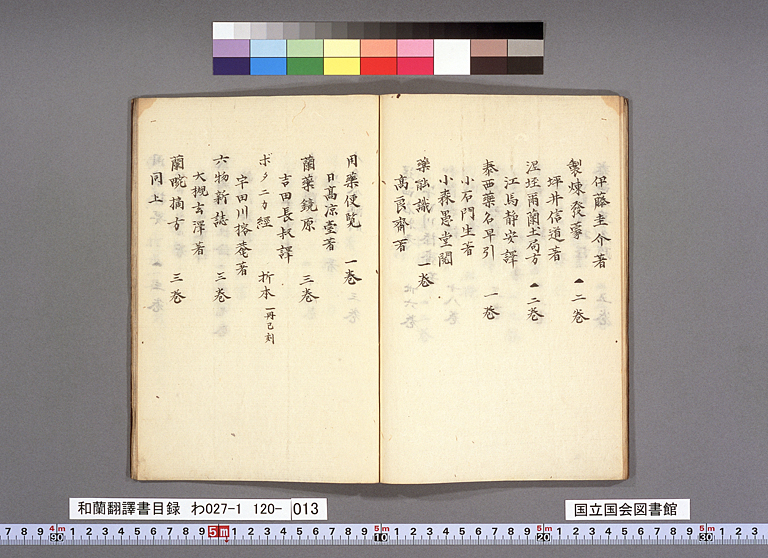 伊藤圭介著
製煉發蒙 二卷
坪井信道著
涅垤爾蘭土局方 二卷
江馬靜安譯
泰西藥名早引 一卷
小石門生著
小森愚堂閲
藥能識 一卷
高良齋著
用藥便覧 一卷
日高涼臺著
蘭藥鏡原 三卷
吉田長叔譯
ボタニカ經 折本 一冊已刻
宇田川榕菴著
六物新誌 三卷
大槻玄澤著
蘭畹摘方 三卷
同上
和蘭翻譯書目録 わ027-1 120-013
国立国会図書館